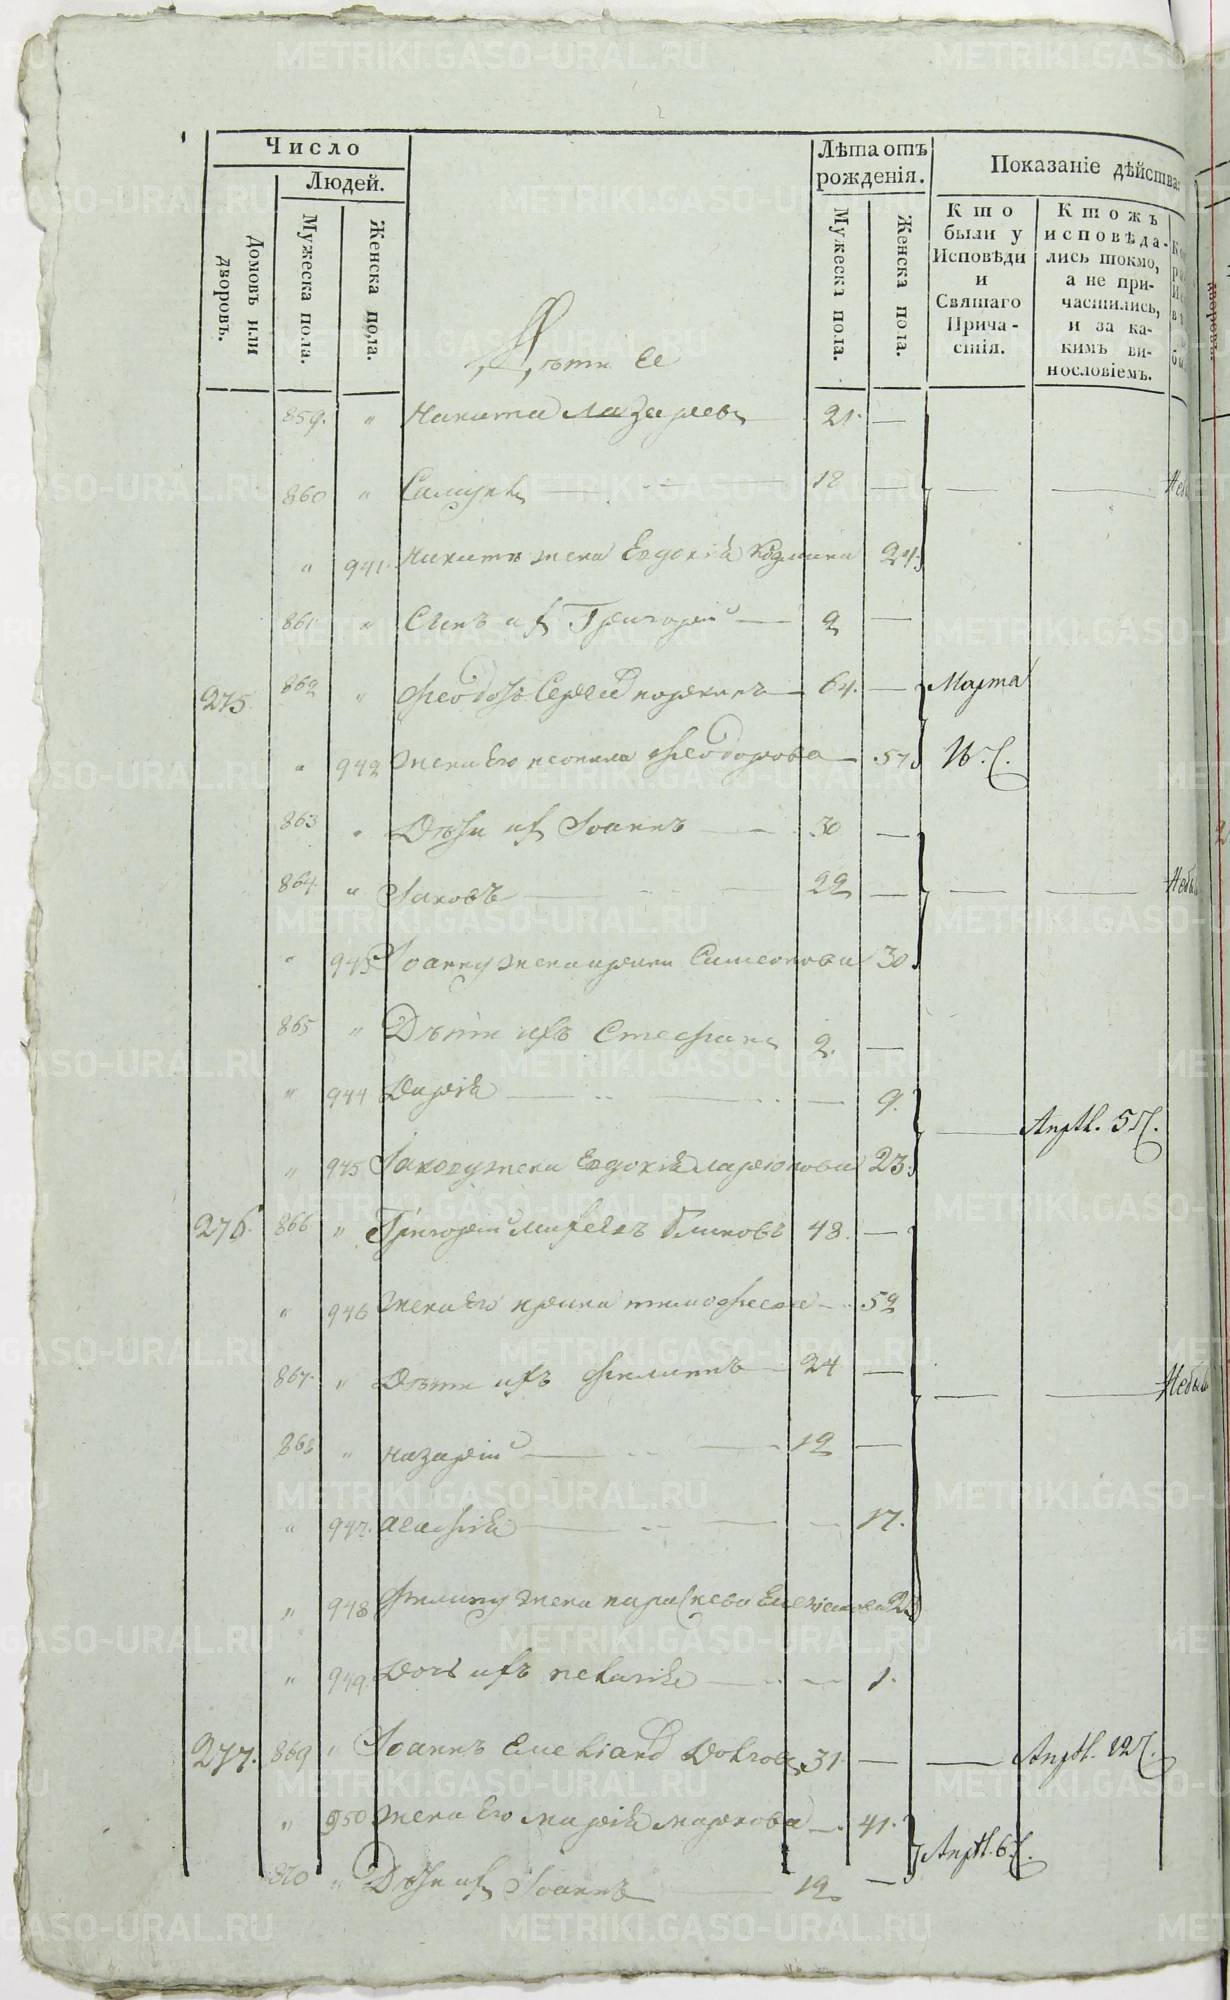 Число
Людей.
Домовъ или дворовъ.
Мужеска пола.
Женска пола.
Лѣта отъ рожденія.
Мужеска пола.
Женска пола.
Показаніе дѣйства
Кто были у Исповѣди и Святаго Причастія.
Ктожъ исповѣдались токмо, а не причастились, и за какимъ винословіемъ.
Дѣти ее
859. " Никита Лазаревъ 21. —
860 " Самуилъ — 18 —
" 941. Никитѣ жена Евдокія Козмина 24.
861 " Сынъ ихъ Григорей — 2 —
275 862 " Феодоръ Сергеевъ — 64. — Марта
" 942 жена Его неонила Феодорова — 57 16. Ч.
863 " Дѣти ихъ Іоаннъ — 30 —
864. " Іаковъ — 22 —
" 943 Іоанну жена ирина Симеонова 30.
865 " Дѣти ихъ Стефанъ 2. —
" 944 Дарія — 9.
Апрѣл. 5 Ч.
" 945 Іакову жена Евдокія ларіонова 23.
276. 866 " Григорей Михеевъ 48. —
" 946 жена Его ирина тимофеева — 52
867. " Дѣти ихъ Филиппъ — 24 —
868 " назарей — 12 —
" 947. агафія — 17.
" 948 Филипу жена параскева
" 949. Дочь ихъ пелагія — 1.
277. 869 " Іоаннъ 31. — Апрѣл. 12 Ч.
" 950 жена Его марія маркова — 41.
Апрѣл. 6 Ч.
870 " Дѣти ихъ Іоаннъ — 12 —
METRIKI.GASO-URAL.RU